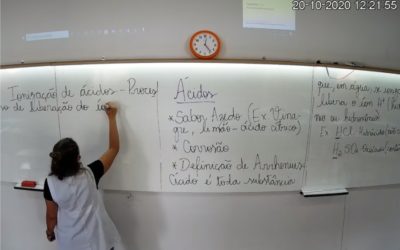 20-10-2020 12:21:55
Ionização de ácidos - Proces
so de liberação do íon
Ácidos
* Sabor Azedo (Ex: Vina-
gre, limão - ácido cítrico)
* Corrosão
* Definição de Arrhenius
Ácido é toda substância
que, em água, se
libera o íon H+
Ex: HCl
H2SO4